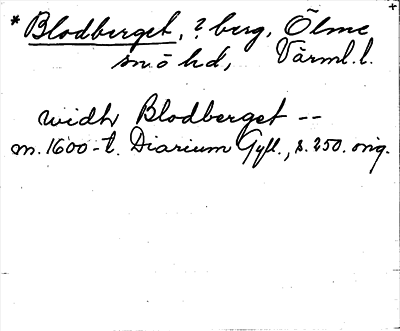 * Blodberget, ? berg, Ölme
sn Ö hd, Värml. l.
widh Blodberget --
m. 1600-t. Diarium Gyll., s. 250. orig.